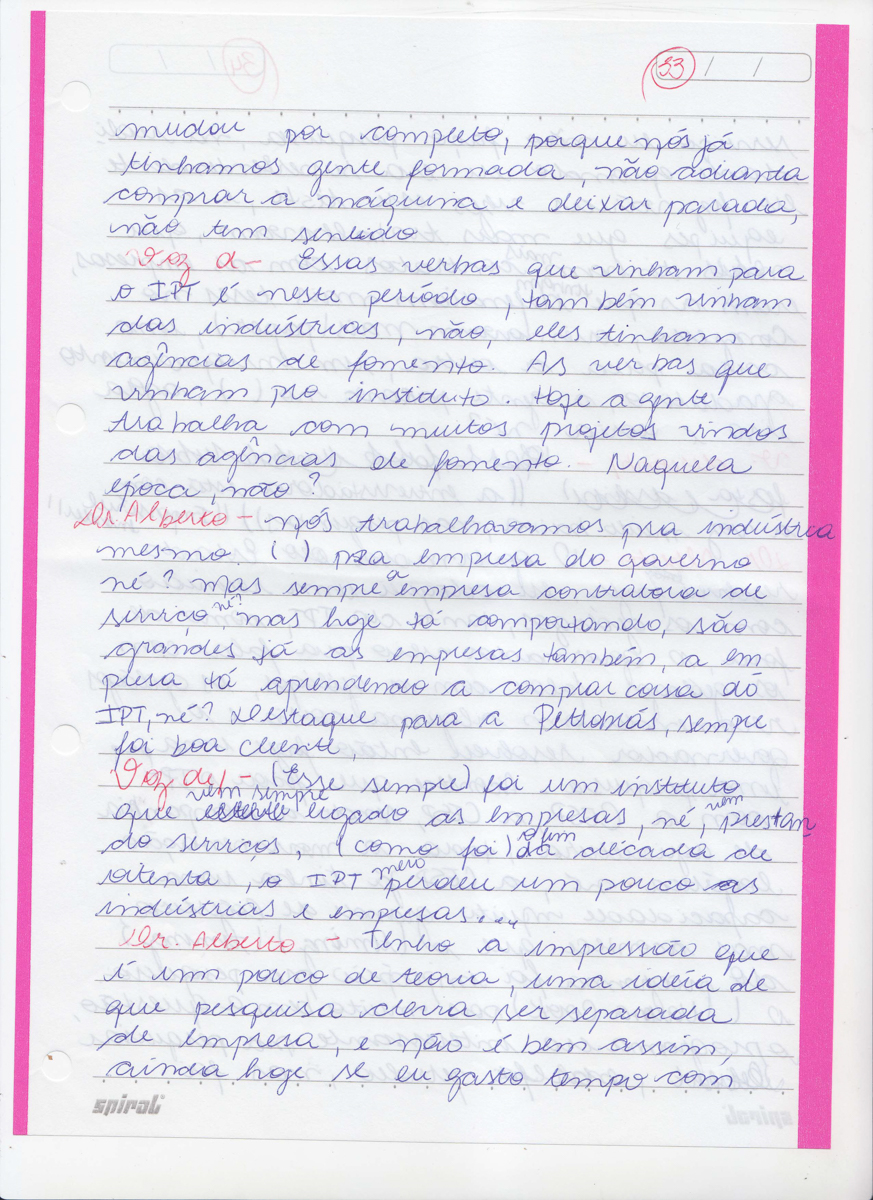 33 / /
mudou por completo, porque nós já
tinhamos gente formada, não adianta
comprar a máquina e deixar parada,
não tem sentido
Voz d - Essas verbas que vinham para
o IPT é neste período, também vinham
das indústrias, não, eles tinham
agências de fomento. As verbas que
vinham pro instituto. Hoje a gente
trabalha com muitos projetos vindos
das agências de fomento. - Naquela
época, não?
Dr. Alberto - nós trabalhavamos pra indústria
mesmo. ( ) pra empresa do governo
né? mas sempre a empresa contratava de
serviço né? mas hoje tá comportando, são
grandes já as empresas também, a em
presa tá aprendendo a comprar coisa dó
IPT, né? Destaque para a Petrobrás, sempre
foi boa cliente,
Voz de/ - (Esse sempre) foi um instituto
que vem sempre ligado as empresas, né, vem prestan
do serviços, (como foi) o fim da década de
oitenta, o IPT meio perdeu um pouco as
indústrias e empresas...
Dr. Alberto - Tenho a impressão que
é um pouco de teoria, uma idéia de
que pesquisa deva ser separada
de empresa, e não é bem assim,
ainda hoje se eu gasto tempo com
spiral